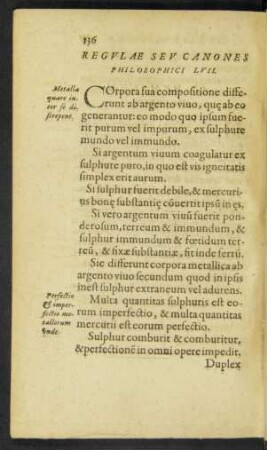 136
REGVLAE SEV CANONES
PHILOSOPHICI LVII.
Metalla
quare in-
ter se di-
screpent.
COrpora sua compositione diffe-
runt ab argento viuo, quę ab eo
generantur: eo modo quo ipsum fue-
rit purum vel impurum, ex sulphure
mundo vel immundo.
Si argentum viuum coagulatur ex
sulphure puro, in quo est vis igneitatis
simplex erit aurum.
Si sulphur fuerit debile, & mercuri-
us bonę substantię cōuertit ipsū in ęs.
Si vero argentum viuū fuerit pon-
derosum, terreum & immundum, &
sulphur immundum & fœtidum ter-
reū, & fixæ substantiæ, fit inde ferrū.
Sic differunt corpora metallica ab
argento viuo secundum quod in ipsis
inest sulphur extraneum vel adurens.
Perfectio
& imper-
fectio me-
tallorum
vnde.
Multa quantitas sulphuris est eo-
rum imperfectio, & multa quantitas
mercurii est eorum perfectio.
Sulphur comburit & comburitur,
& perfectionē in omni opere impedit.
Duplex